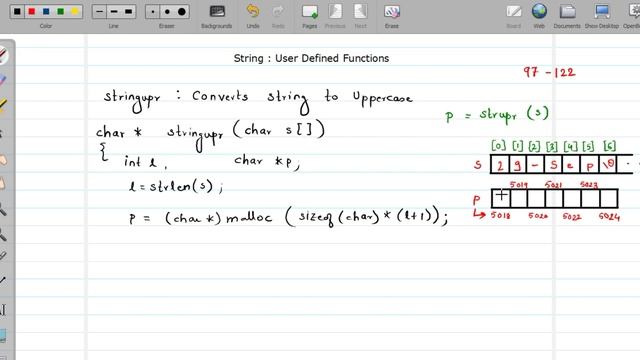 Color
Line
Eraser
Backgrounds
Undo
Redo
Pages
Previous
Next
Erase
Screen
Show Desktop
String : User Defined Functions
97 - 122
stringupr : Converts string to Uppercase
p = strupr (s)
char * stringupr (char s[])
{
int l, char *p;
l = strlen(s);
p = (char *) malloc (sizeof (char) * (l+1));
[0] [1] [2] [3] [4] [5] [6]
s 2 9 - S e p \0
5019 5021 5023
p
5018 5020 5022 5024